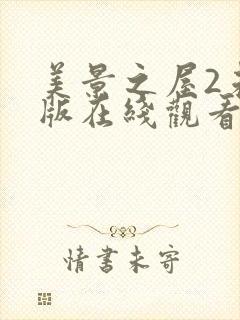 美景之屋2
版在綫觀看
情書未寄